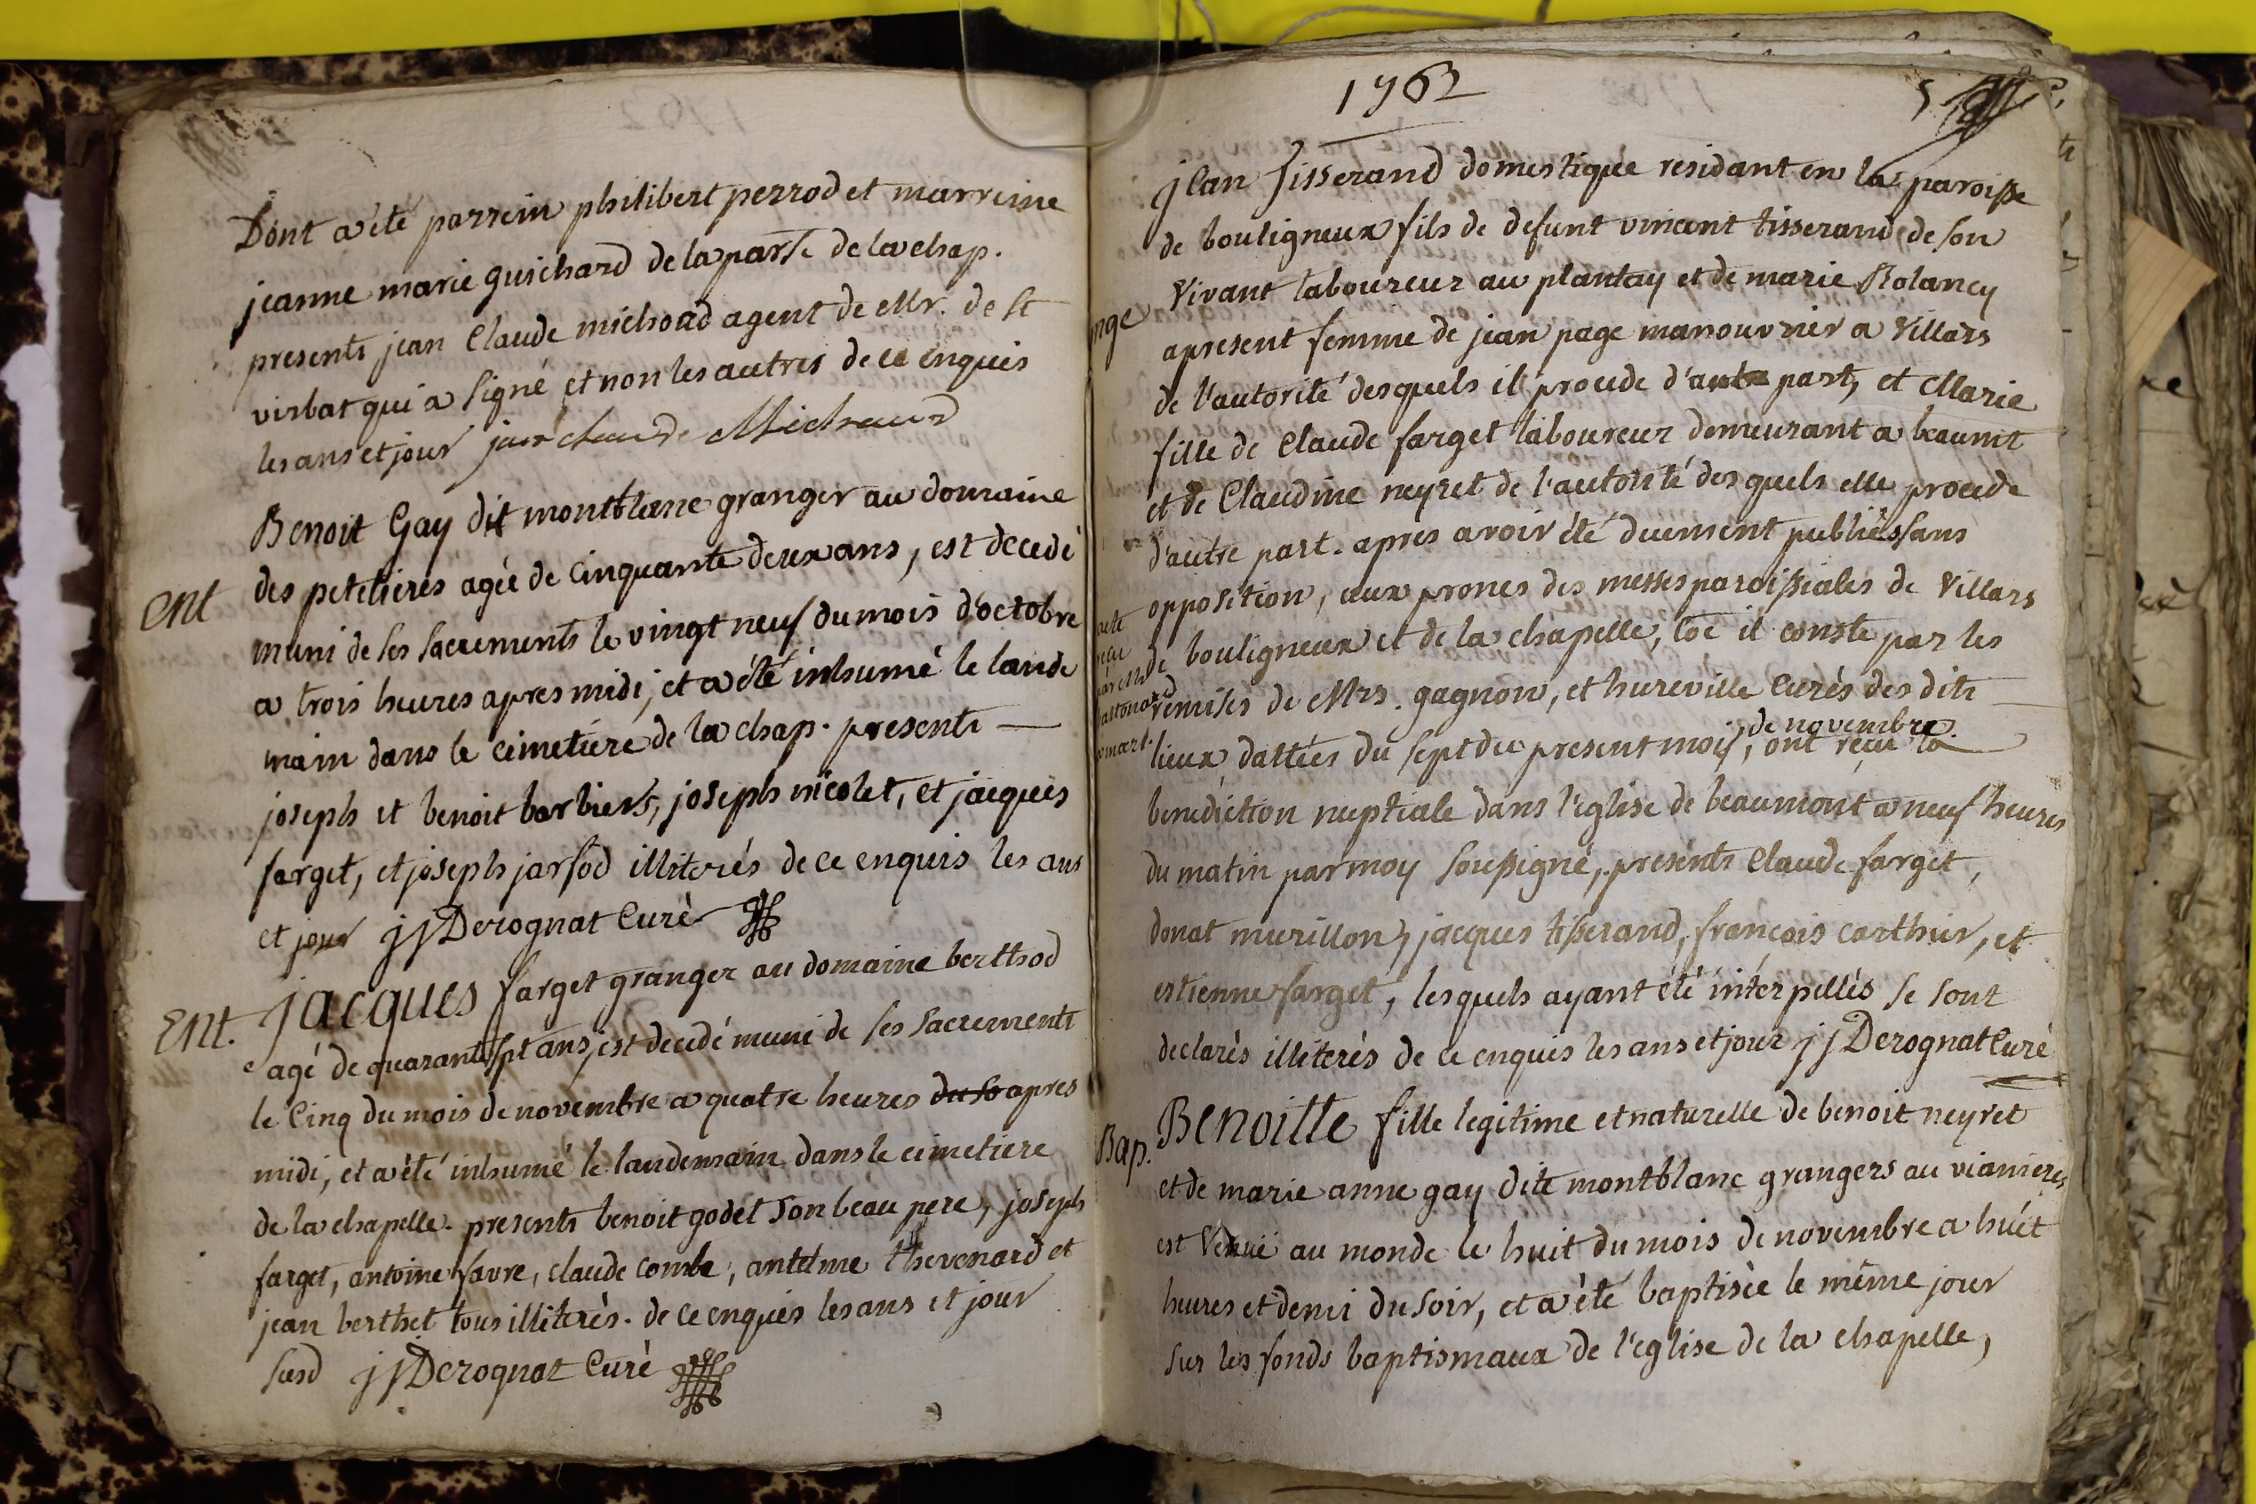 Dont a été parrein philibert perrod et marreine
jeanne marie guichard de la parse de la chap.
presents jean Claude michoud agent de Mr. de st
virbat qui a signé et non les autres de ce enquis
les ans et jour jean claude Michaud
Benoit Gay dit montblanc granger au domaine
Ent
des petelieres agée de cinquante deux ans, est decedé
muni de ses sacrements le vingt neuf du mois d'octobre
a trois heures apres midi, et a été inhumé le lande
main dans le cimetiere de la chap. presents —
joseph et benoit barbiers, joseph nicolet, et jacques
farget, et joseph jarsod illiterés de ce enquis les ans
et jour jj Derognat Curé
Jacques farget granger au domaine berthod
Ent.
agé de quarante sept ans, est decedé muni de ses sacrements
le Cinq du mois de novembre a quatre heures du so apres
midi, et a été inhumé le landemain dans le cimetiere
de la chapelle. presents benoit godet son beau pere, joseph
farget, antoine favre, claude combe, antelme thevenard et
jean berthet tous illiterés. de ce enquis les ans et jour
susd jj Derognat Curé
1762
5
jean Tisserand domestique residant en la paroisse
de bouligneux fils de defunt vincent tisserand de son
vivant laboureur au plantay et de marie Rolancy
nge
apresent femme de jean page manouvrier a villars
de l'autorité desquels il procede d'autre part, et Marie
fille de Claude farget laboureur demeurant a beaumt
et de Claudine neyret de l'autorité des quels elle procede
d'autre part. apres avoir été duement publiés sans
opposition, aux prones des messes paroissiales de villars
de bouligneux et de la chapelle, coe il conste par les
remises de Mrs. gagnon, et hureville Curés des dits
de novembre
lieux dattées du sept du present mois, ont reçu la
benediction nuptiale dans l'eglise de beaumont a neuf heures
du matin par moy soussigné, presents Claude farget,
donat murillon, jacques tisserand, françois carthier, et
estienne farget, lesquels ayant été interpellés se sont
declarés illiterés de ce enquis les ans et jour jj Derognat Curé
Benoitte fille legitime et naturelle de benoit neyret
Bap.
et de marie anne gay dite montblanc grangers au vianieres
est venuë au monde le huit du mois de novembre a huit
heures et demi du soir, et a été baptisée le même jour
sur les fonds baptismaux de l'eglise de la chapelle,